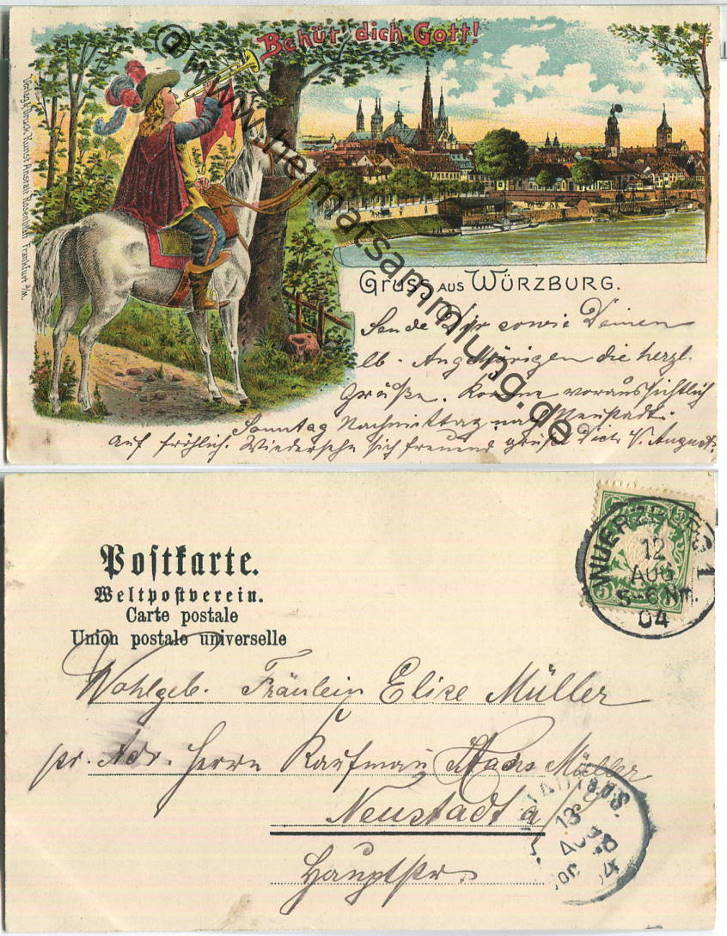 Behüt' dich Gott!
© www.heimatsammlung.de
Verlag & Druck Kunst Anstalt Rosenblatt Frankfurt a/M.
Gruss aus Würzburg.
Sende Dir sowie Deinen
lb. Angehörigen die herzl.
Grüße. Komme voraussichtlich
Sonntag Nachmittag nach Neustadt.
Auf fröhlich. Wiedersehn sich freuend grüßt Dich August.
WUERZBURG 1
12
AUG
5-6 Nm.
04
Postkarte.
Weltpostverein.
Carte postale
Union postale universelle
Wohlgeb. Fräulein Elise Müller
pr. Adr. Herrn Kaufmann Hans Müller
Neustadt a/
Hauptstr.